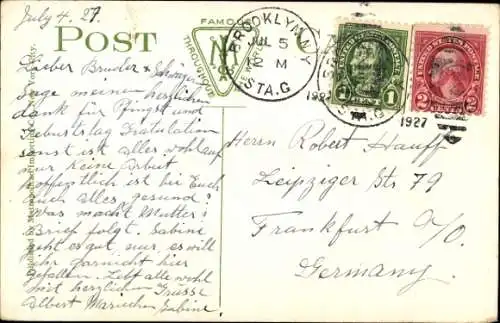 July 4. 27.
FAMOUS
THROUGHOUT
POST
BROOKLYN, N.Y.
JUL 5
12 M
STA. G
1927
STA. G
1927
UNITED STATES POSTAGE
1 1
CENT
UNITED STATES POSTAGE
2 2
CENTS
Lieber Bruder & Schwägerin
Sage meinen herzlichen
dank für Pfingst und
Geburtstag Gratulation
sonst ist alles wohl auf
nur keine Arbeit
hoffentlich ist bei Euch
auch alles gesund?
Was macht Mutter?
Brief folgt. Sabine
geht es gut nur, es will
ihr garnicht hier
gefallen. Lebt alle wohl
mit herzlichen Grüsse
Albert Mariechen Sabine
Herrn Robert Hauff
Leipziger Str 79
Frankfurt a/O.
Germany